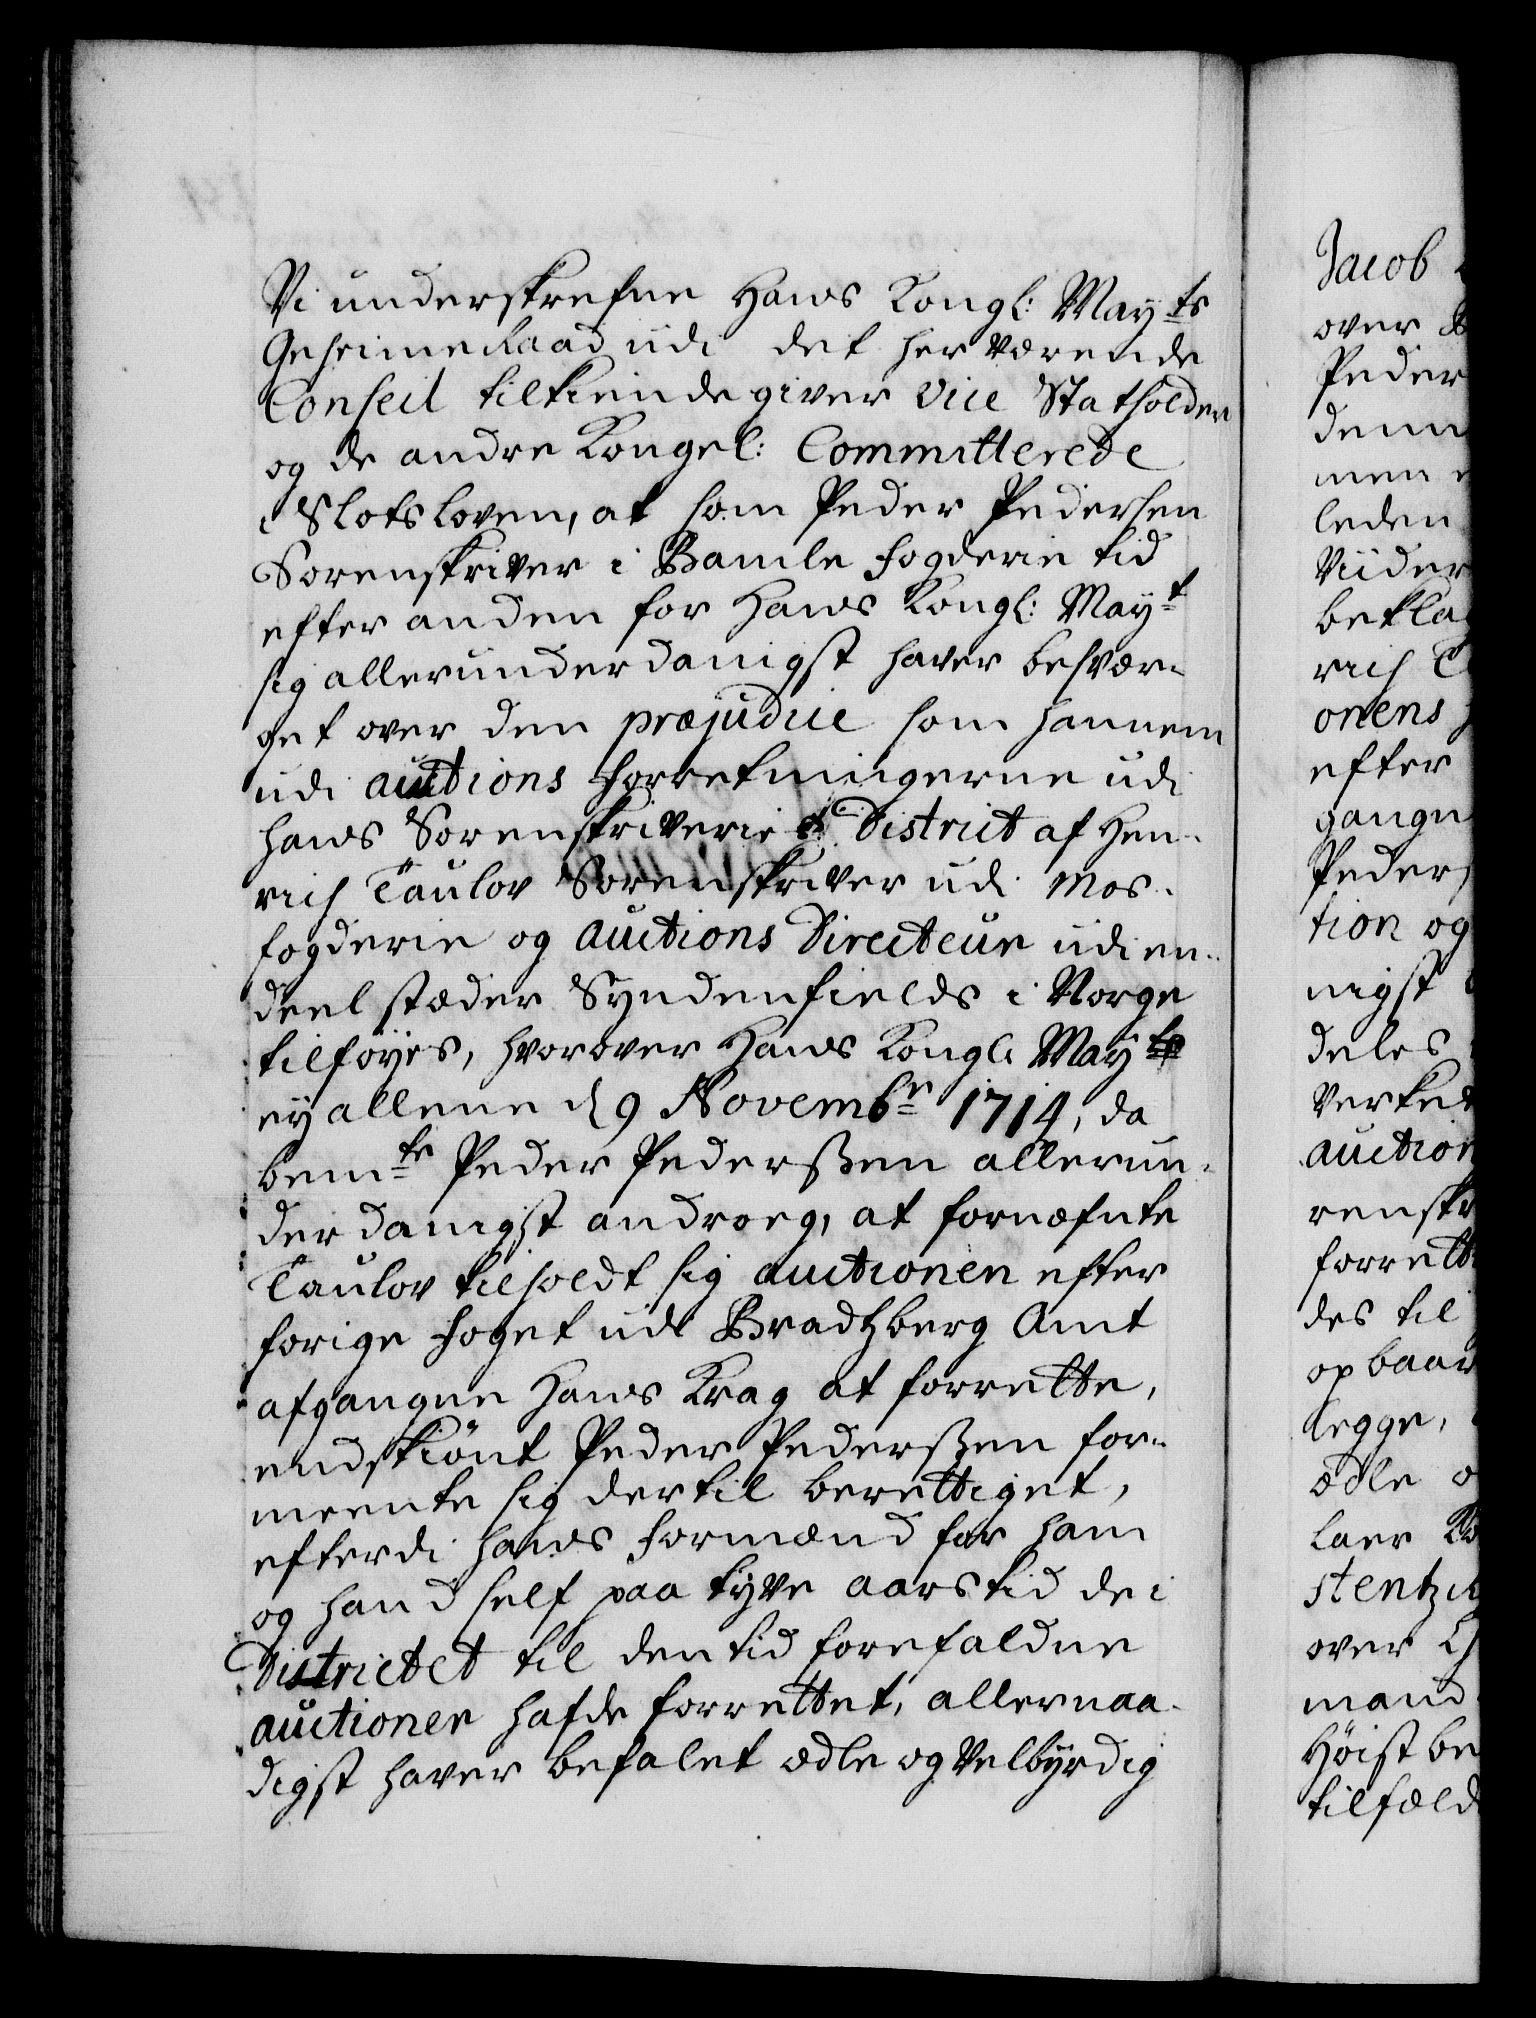 Vi underskrefne Hans Kongl: Mayts
Geheimeraad udi det her værende
Conseil tilkiendegiver Vice Statholder
og de andre Kongel: Committerede
i Slotsloven, at som Peder Pedersen
Sorenskriver i Bamle fogderie tid
efter anden for Hans Kongl: Mayt
sig allerunderdanigst haver besvær-
get over den præjudice som hannem
udi auctions forretningerne udi
hans Sorenskriveries District af Hen-
rich Taulov Sorenskriver udi Mos-
fogderie og auctions Directeur udi en-
deel stæder Syndenfields i Norge
tilføyes, hvorover Hans Kongl: Mayts
ey allene d 9 Novembr 1714, da
bemte Peder Pederssen allerun-
derdanigst androeg, at fornæfnte
Taulov tilholdt sig auctionen efter
forige foget udi Bradtzberg Amt
afgangne Hans Krag at forrette,
endskiönt Peder Pederssen for-
meente sig dertil berettiget,
efterdi hans formænd for ham
og hand self paa tyve aars tid de i
Districtet til den tid forefaldne
auctioner hafde forrettet, allernaa-
digst haver befalet ædle og Velbyrdig
Jacob
over
Peder
denn
men
leden
Viider
bekla
rich
onens
efter
gangn
Peders
tion og
nigst
deles
Verked
auction
renskr
forrett
des til
opbaar
legge,
ædle
laer
stentzi
over
mand
Høist be
tilfæld